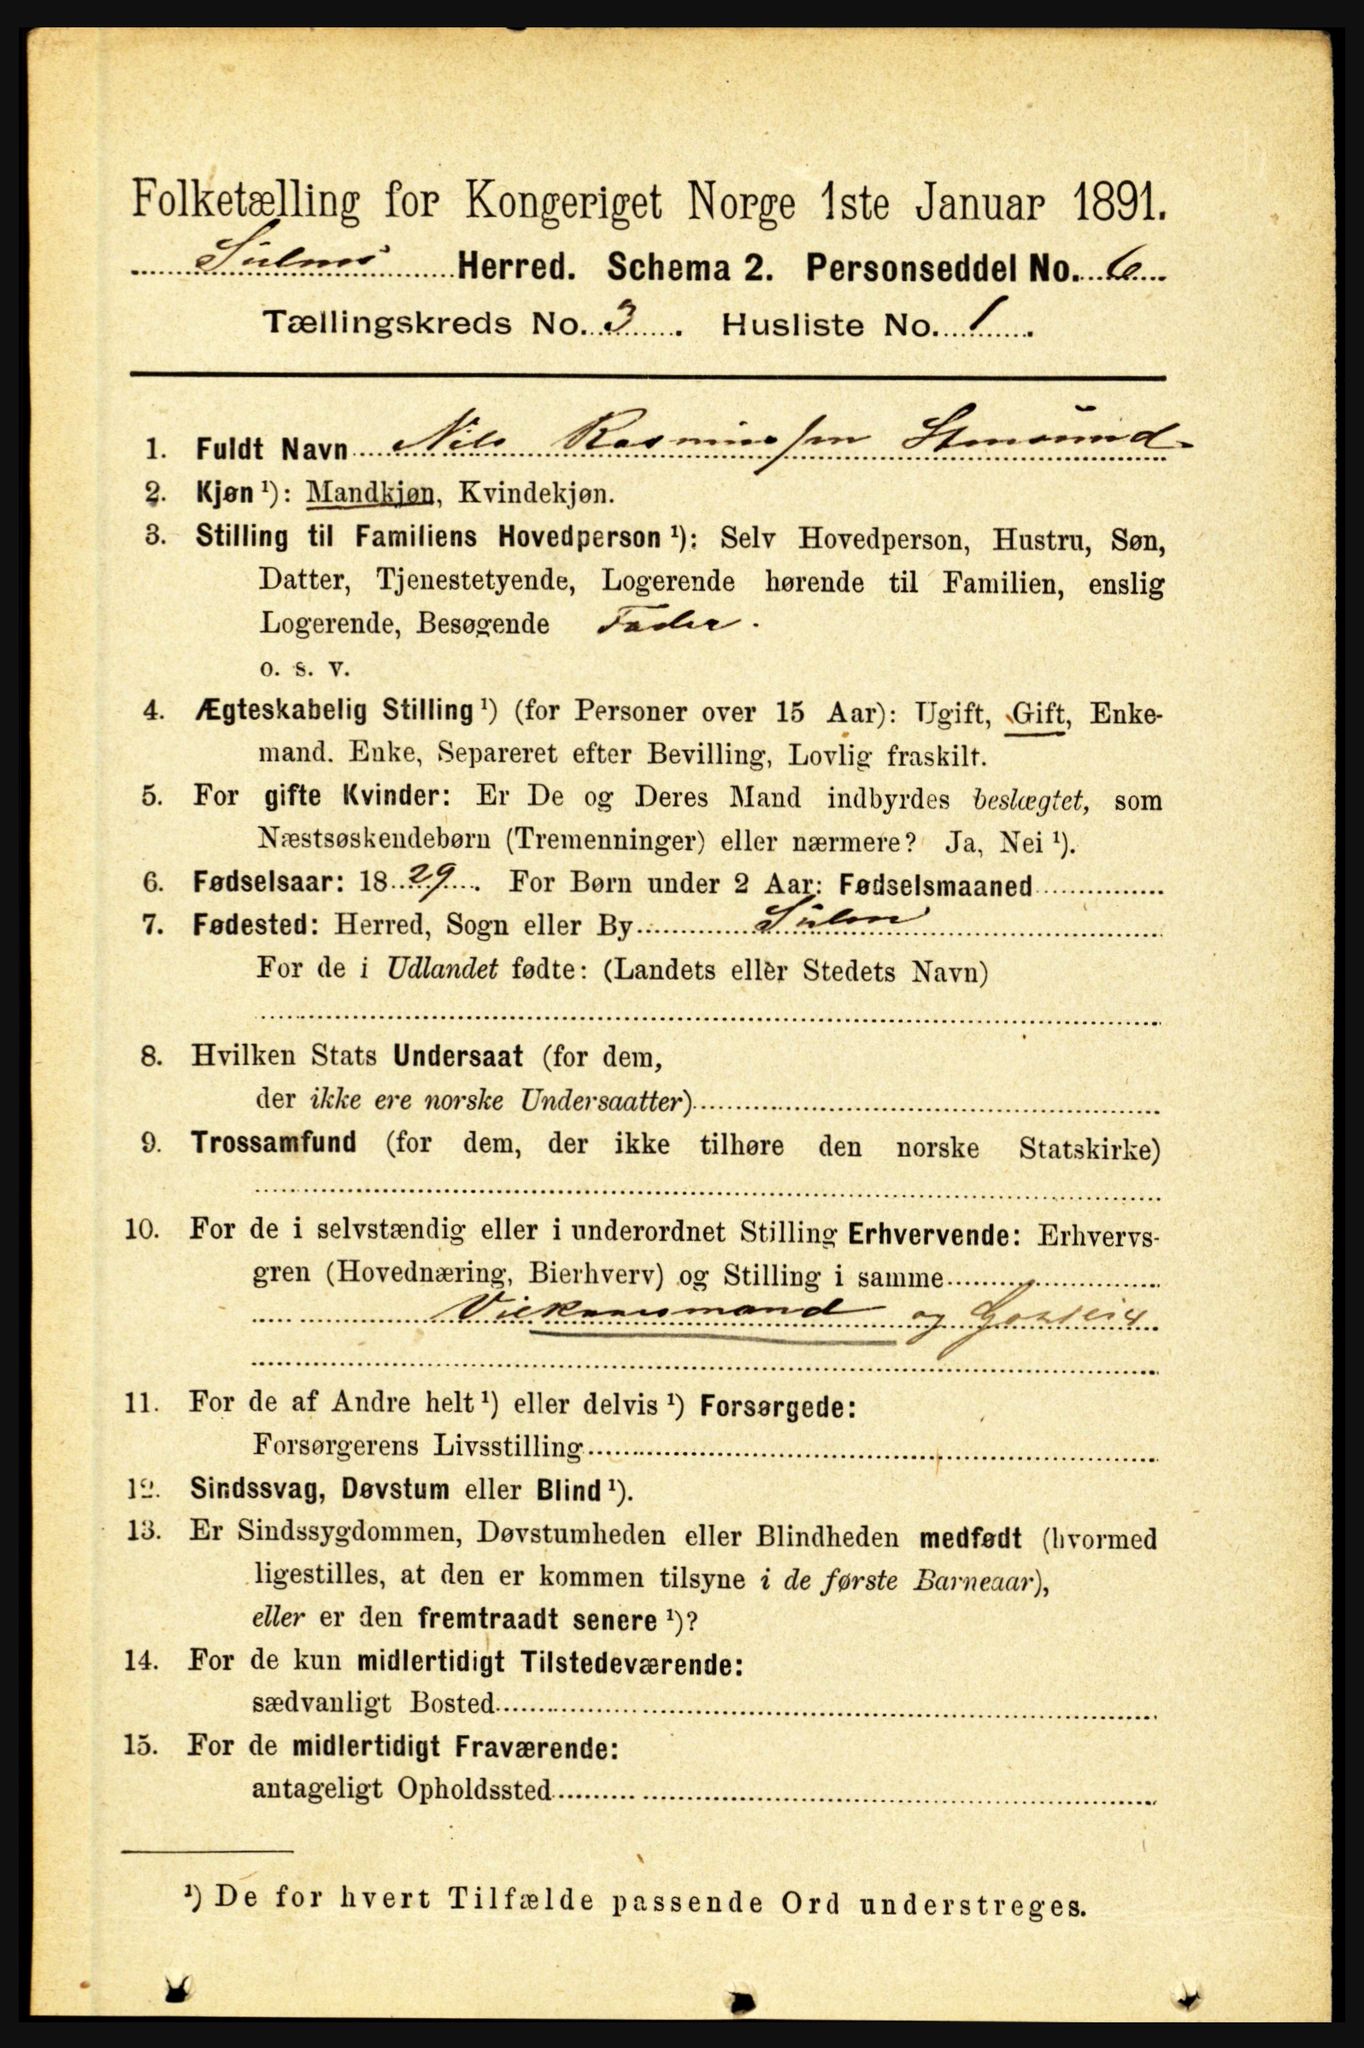 Folketælling for Kongeriget Norge 1ste Januar 1891.
Herred. Schema 2. Personseddel No. 6
Tællingskreds No. 3. Husliste No. 1.
1. Fuldt Navn Nils Rasmussen
2. Kjøn ¹): Mandkjøn, Kvindekjøn.
3. Stilling til Familiens Hovedperson ¹): Selv Hovedperson, Hustru, Søn,
Datter, Tjenestetyende, Logerende hørende til Familien, enslig
Logerende, Besøgende Fader.
o. s. v.
4. Ægteskabelig Stilling ¹) (for Personer over 15 Aar): Ugift, Gift, Enke-
mand. Enke, Separeret efter Bevilling, Lovlig fraskilt.
5. For gifte Kvinder: Er De og Deres Mand indbyrdes beslægtet, som
Næstsøskendebørn (Tremenninger) eller nærmere? Ja, Nei ¹).
6. Fødselsaar: 1829. For Børn under 2 Aar: Fødselsmaaned
7. Fødested: Herred, Sogn eller By
For de i Udlandet fødte: (Landets eller Stedets Navn)
8. Hvilken Stats Undersaat (for dem,
der ikke ere norske Undersaatter)
9. Trossamfund (for dem, der ikke tilhøre den norske Statskirke)
10. For de i selvstændig eller i underordnet Stilling Erhvervende: Erhvervs-
gren (Hovednæring, Bierhverv) og Stilling i samme
og
11. For de af Andre helt ¹) eller delvis ¹) Forsørgede:
Forsørgerens Livsstilling
12. Sindssvag, Døvstum eller Blind ¹).
13. Er Sindssygdommen, Døvstumheden eller Blindheden medfødt (hvormed
ligestilles, at den er kommen tilsyne i de første Barneaar),
eller er den fremtraadt senere ¹)?
14. For de kun midlertidigt Tilstedeværende:
sædvanligt Bosted
15. For de midlertidigt Fraværende:
antageligt Opholdssted
¹) De for hvert Tilfælde passende Ord understreges.